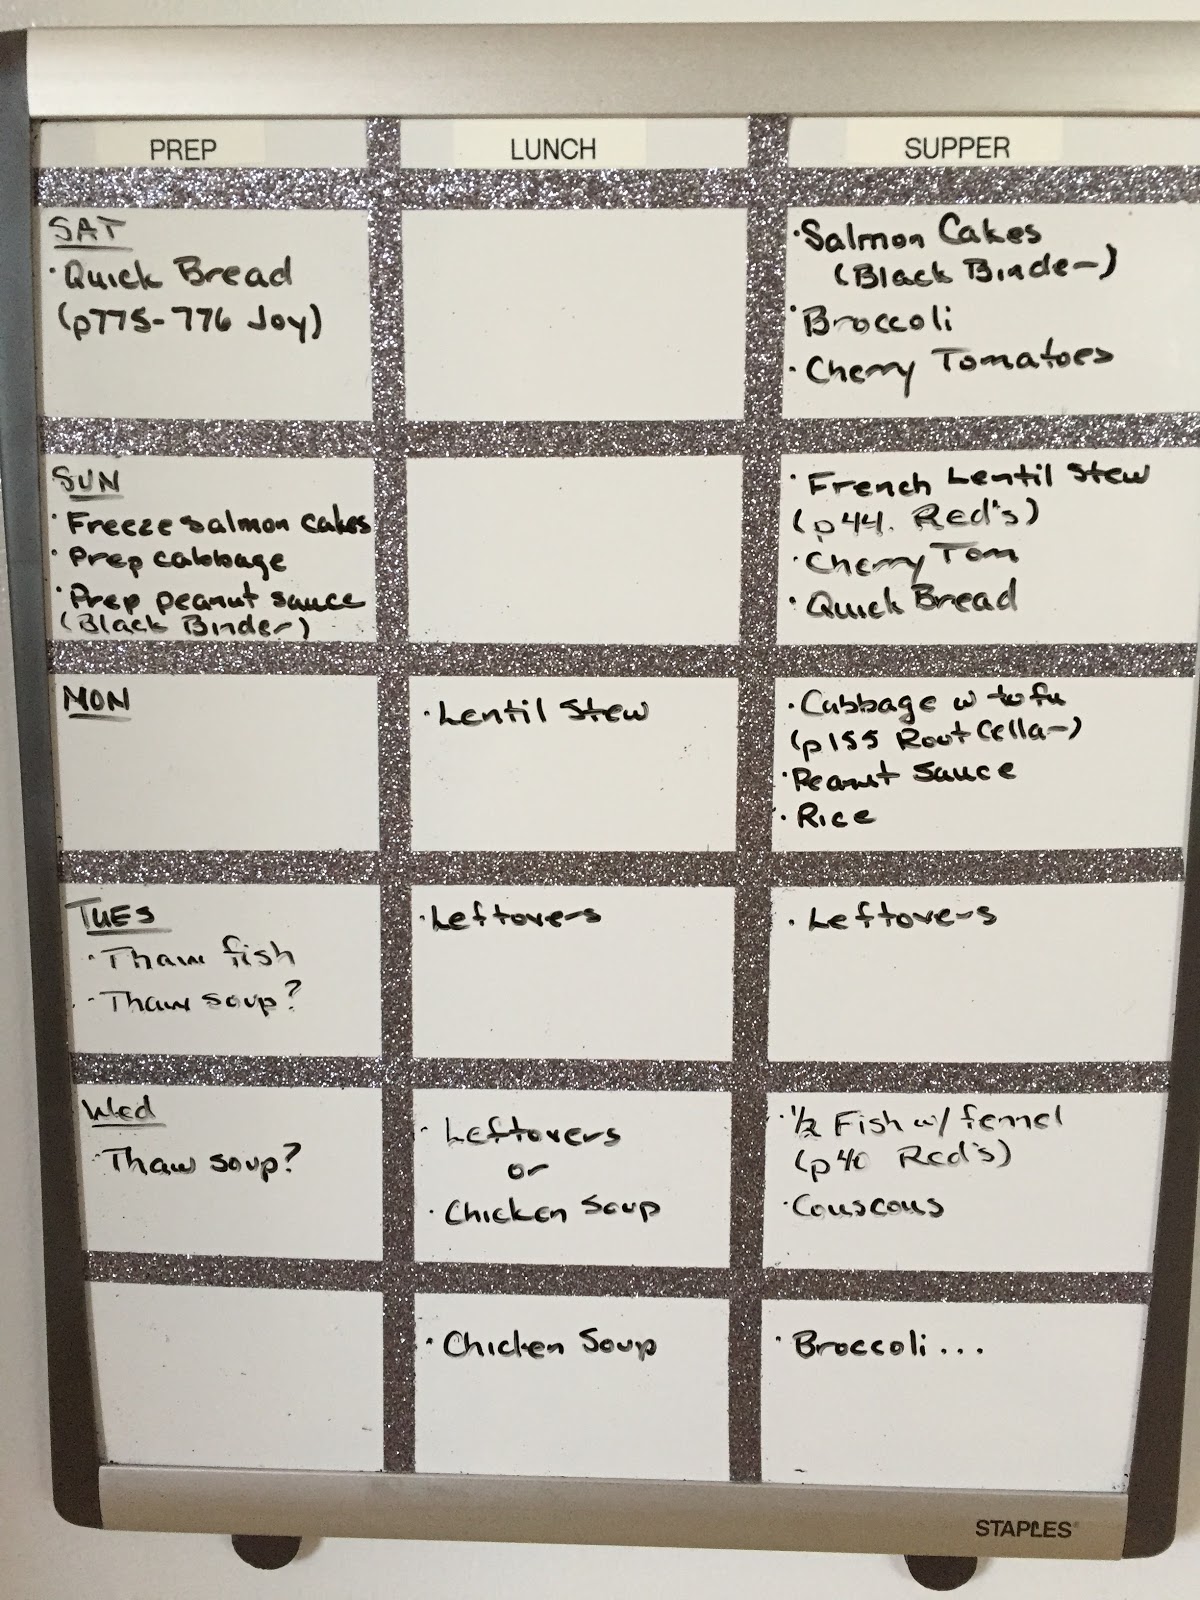 PREP
LUNCH
SUPPER
SAT
·Quick Bread
(p775-776 Joy)
·Salmon Cakes
(Black Binder)
·Broccoli
·Cherry Tomatoes
SUN
·Freeze salmon cakes
·Prep cabbage
·Prep peanut sauce
(Black Binder)
·French Lentil Stew
(p44. Red's)
·Cherry Tom
·Quick Bread
MON
·Lentil Stew
·Cabbage w tofu
(p155 Root Cellar)
·Peanut Sauce
·Rice
TUES
·Thaw fish
·Thaw soup?
·Leftovers
·Leftovers
Wed
·Thaw soup?
·Leftovers
or
·Chicken Soup
·1/2 Fish w/ fennel
(p40 Red's)
·Couscous
·Chicken Soup
·Broccoli...
STAPLES